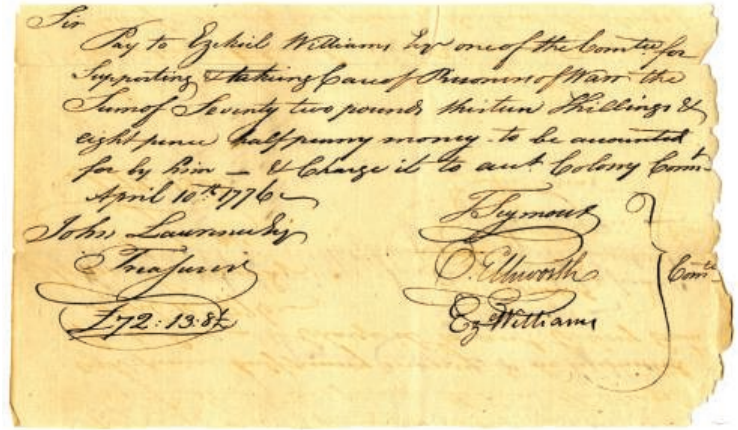 Sir
Pay to Ezekiel Williams Esqr one of the Comtee for
Supporting & taking Care of Prisoners of Warr the
Sum of Seventy two pounds thirteen Shillings &
eight pence half penny money - to be accounted
for by him — & Charge it to acct. Colony Connt
April 10th 1776
John Lawrence Esq
Treasurer
£72:13:8½
T Seymour
O. Ellsworth
Ez Williams
Comtee